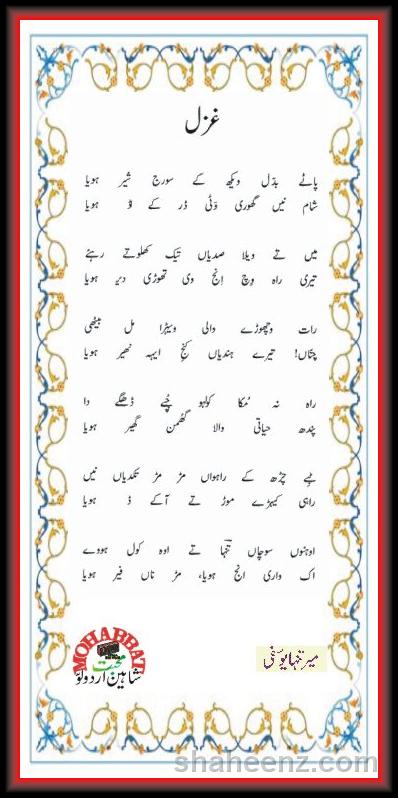 غزل
پاٹے بدّل ویکھ کے سورج شیر ہویا
شام نیں گھوری وَٹی ڈر کے ہویا
میں تے ویلا صدیاں تیک کھلوتے رہئے
تیری راہ وچ انج وی تھوڑی دیر ہویا
رات وچھوڑے والی ویہڑا مل بیٹھی
چنّاں! تیرے ہندیاں کنج ایہہ نھیر ہویا
راہ نہ مُکا کولہو جُپے ڈھگے دا
پندھ حیاتی والا گھُمن گھیر ہویا
ٹبے چڑھ کے راہواں مڑ مڑ تکدیاں نیں
راہی کیہڑے موڑ تے آکے ہویا
اوہنوں سوچاں تنہا تے اوہ کول ہووے
اک واری انج ہویا، مڑ ناں فیر ہویا
میر تنہا یوسفی
MOHABBAT
محبت
شاہین اردو لور
shaheenz.com